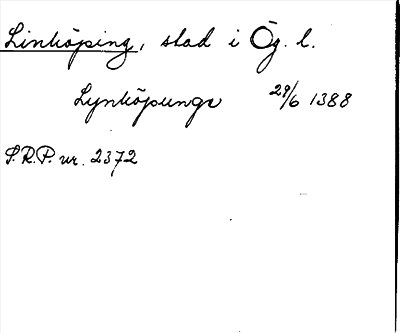 Linköping, stad i Ög. l.
Lynköpunge 29/6 1388
S.R.P. nr. 2372